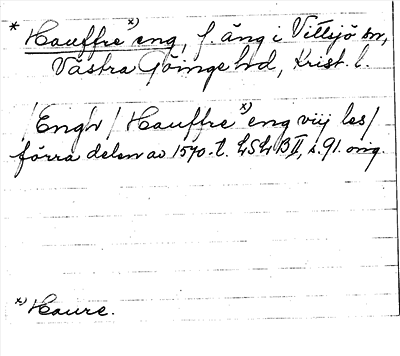 * Hauffre x) eng, f. äng i Vittsjö sn,
Västra Göinge hd, Krist. l.
/Engr/ Hauffre x) eng viij les/
förra delen av 1570.t. LSLB II, s. 91. orig.
x) Haure.